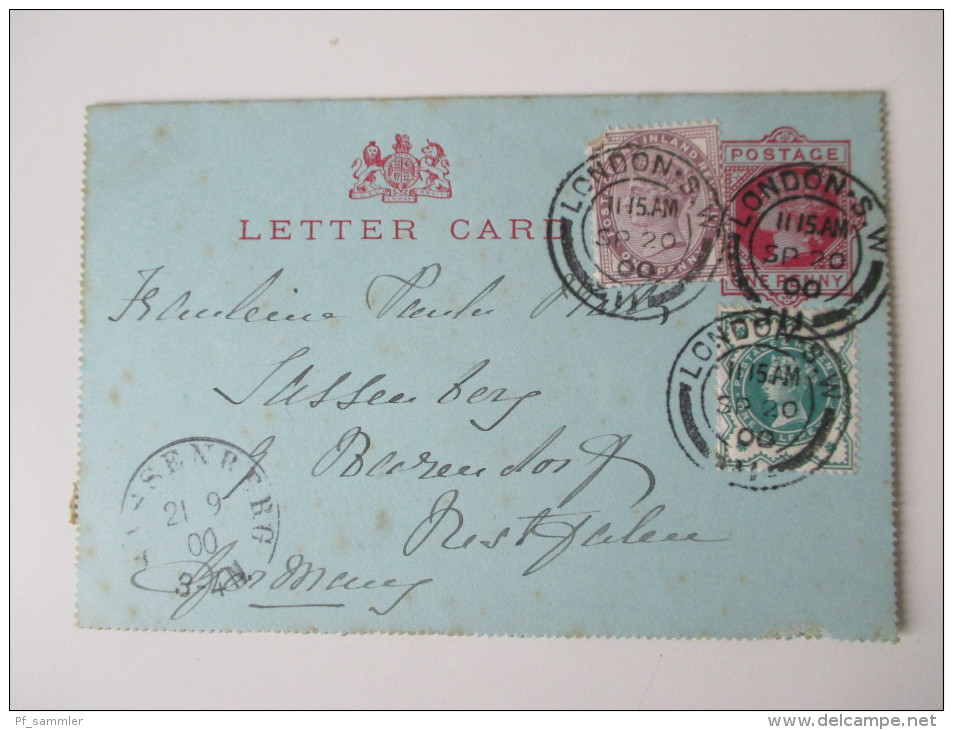 LETTER CARD
POSTAGE
ONE PENNY
INLAND
ONE PENNY
LONDON·S·W
11.15.AM
SP 20
00
LONDON·S·W
11.15.AM
SP 20
00
LONDON·S·W
11.15.AM
SP 20
00
Fräulein Paula
Sassenberg
Westfalen
Germany
SSENBERG
21 9
00
3-4N.
Pf_sammler
www.delcampe.net